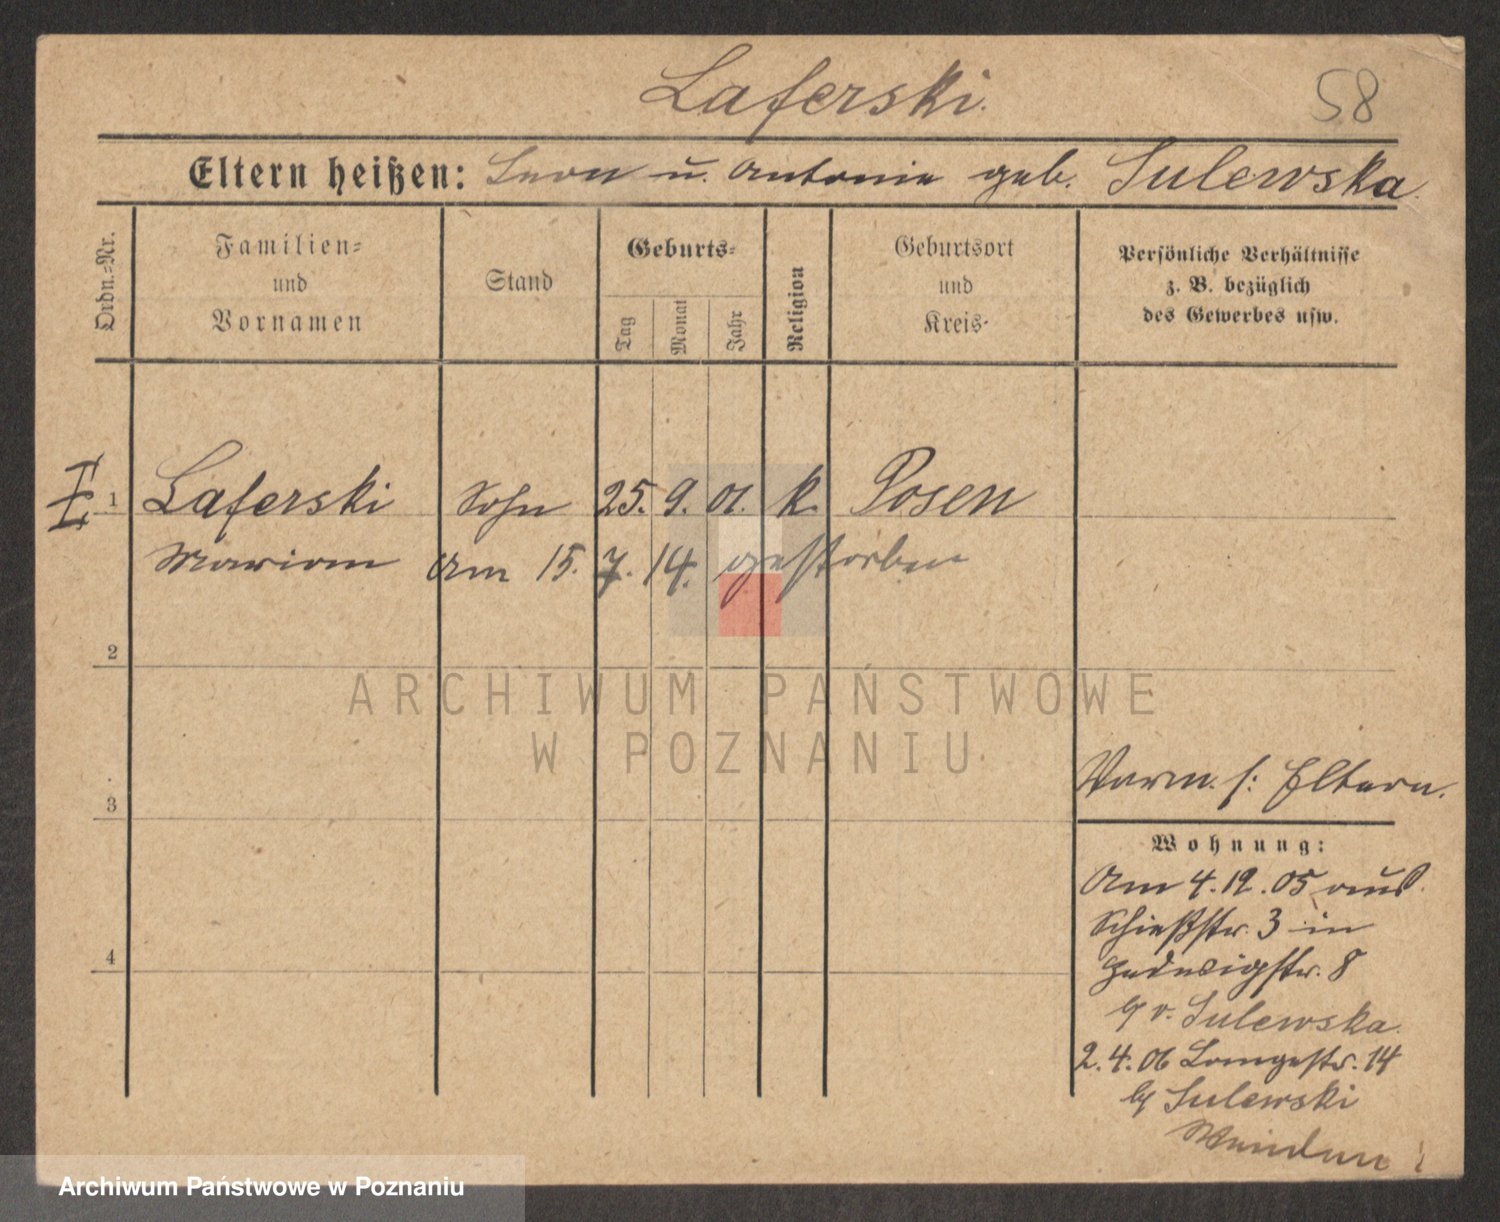 Laferski.
58
Eltern heißen: Leon u. Antonie geb. Sulewska.
Ordn.-Nr.
Familien-
und
Vornamen
Stand
Geburts-
Tag
Monat
Jahr
Religion
Geburtsort
und
Kreis
Persönliche Verhältnisse
z. B. bezüglich
des Gewerbes usw.
1 Laferski Sohn 25. 9. 01. k. Posen
Marian Am 15. 7. 14. gestorben
2
3
4
ARCHIWUM PAŃSTWOWE
W POZNANIU
Verm. s: Eltern.
Wohnung:
Am 4.12.05 aus
Schießstr. 3 in
Hedwigstr. 8
b/ v. Sulewska.
2.4.06 Langestr. 14
b/ Sulewski
Archiwum Państwowe w Poznaniu